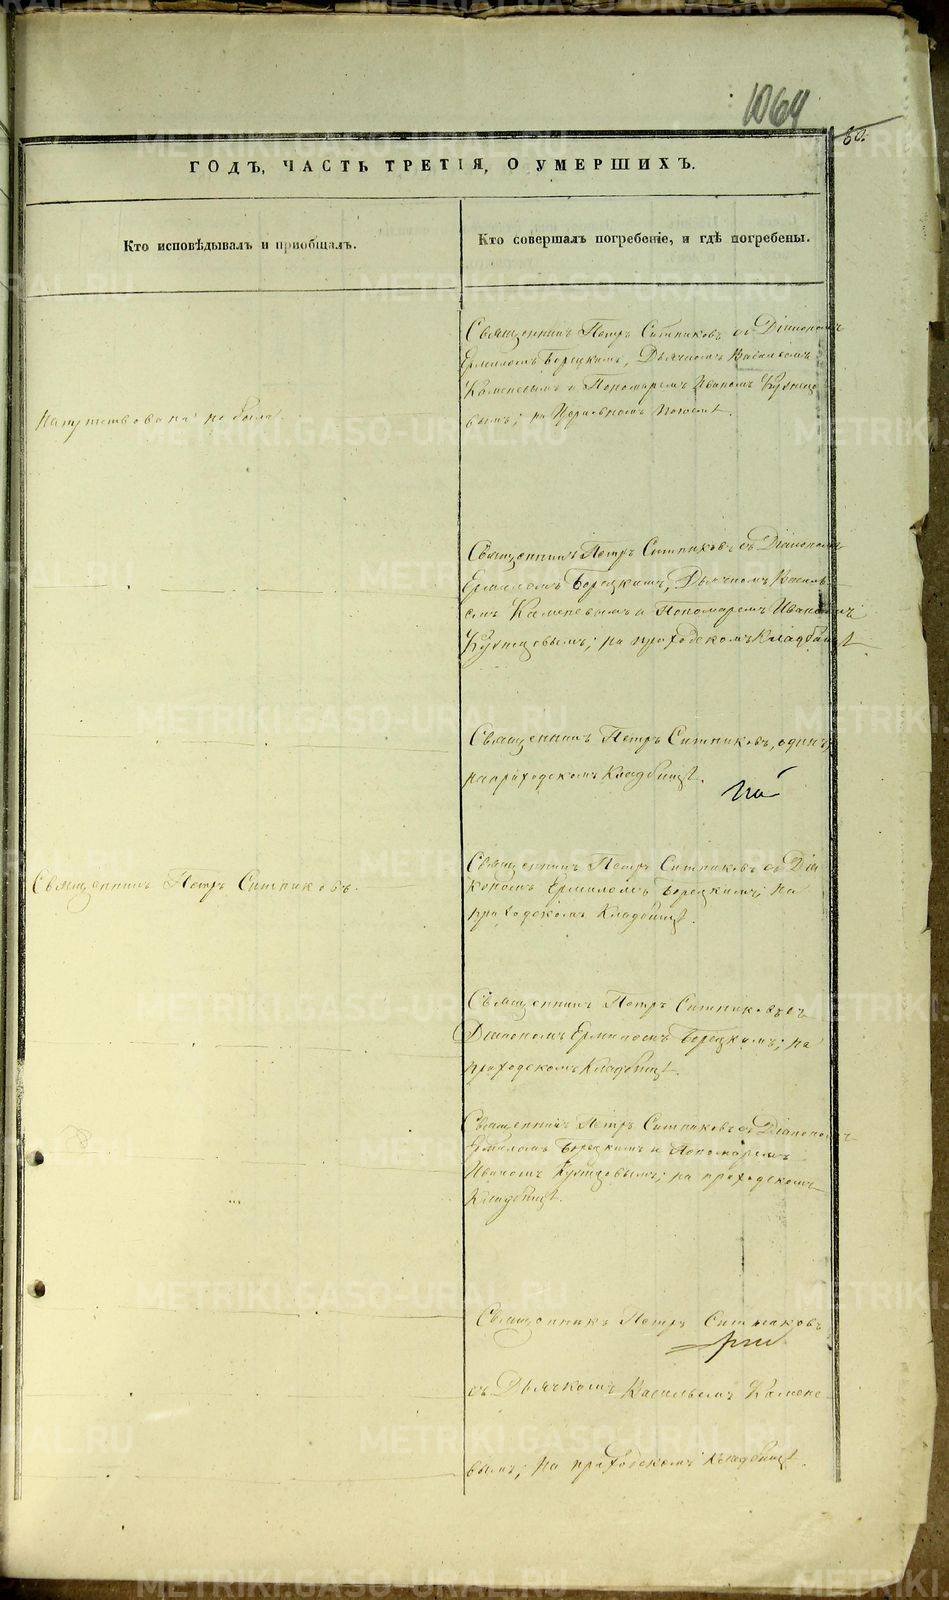 1064
60.
ГОДЪ, ЧАСТЬ ТРЕТІЯ, О УМЕРШИХЪ.
Кто исповѣдывалъ и пріобщалъ.
Кто совершалъ погребеніе, и гдѣ погребены.
Священникъ Петръ Ситниковъ съ Діакономъ
Ермиломъ Борецкимъ, Дьячкомъ Васильемъ
Каменевымъ и Пономаремъ Иваномъ Кузнецо
вымъ; на
не была
Священникъ Петръ Ситниковъ съ Діакономъ
Ермиломъ Борецкимъ, Дьячкомъ Василь
емъ Каменевымъ и Пономаремъ Иваномъ
Кузнецовымъ; на приходскомъ Кладбищѣ
Священникъ Петръ Ситниковъ, одинъ,
на приходскомъ Кладбищѣ.
Священникъ Петръ Ситниковъ.
Священникъ Петръ Ситниковъ съ Діа
кономъ Ермиломъ Борецкимъ; на
приходскомъ Кладбищѣ.
Священникъ Петръ Ситниковъ съ
Діакономъ Ермиломъ Борецкимъ; на
приходскомъ Кладбищѣ.
Священникъ Петръ Ситниковъ съ Діакономъ
Ермиломъ Борецкимъ и Пономаремъ
Иваномъ Кузнецовымъ; на приходскомъ
Кладбищѣ.
Священникъ Петръ Ситниковъ
съ Дьячкомъ Васильемъ Камене
вымъ; на приходскомъ Кладбищѣ.
METRIKI.GASO-URAL.RU